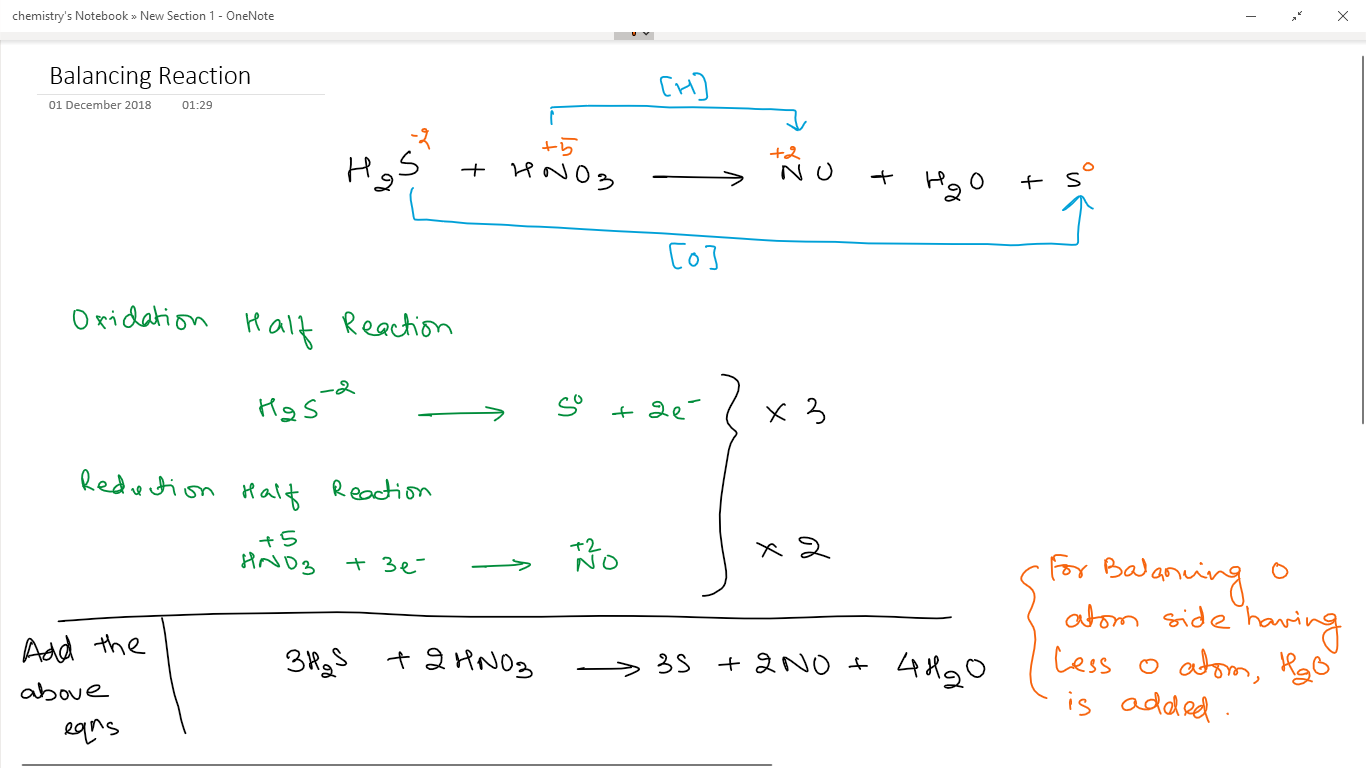 chemistry's Notebook » New Section 1 - OneNote
Balancing Reaction
01 December 2018 01:29
[H]
-2 +5 +2 0
H₂S + HNO₃ ⟶ NO + H₂O + S
[O]
Oxidation Half Reaction
H₂S⁻² ⟶ S⁰ + 2e⁻ } × 3
Reduction Half Reaction
+5 +2
HNO₃ + 3e⁻ ⟶ NO × 2
For Balancing O
atom side having
less O atom, H₂O
is added.
Add the
above
eqns
3H₂S + 2HNO₃ ⟶ 3S + 2NO + 4H₂O